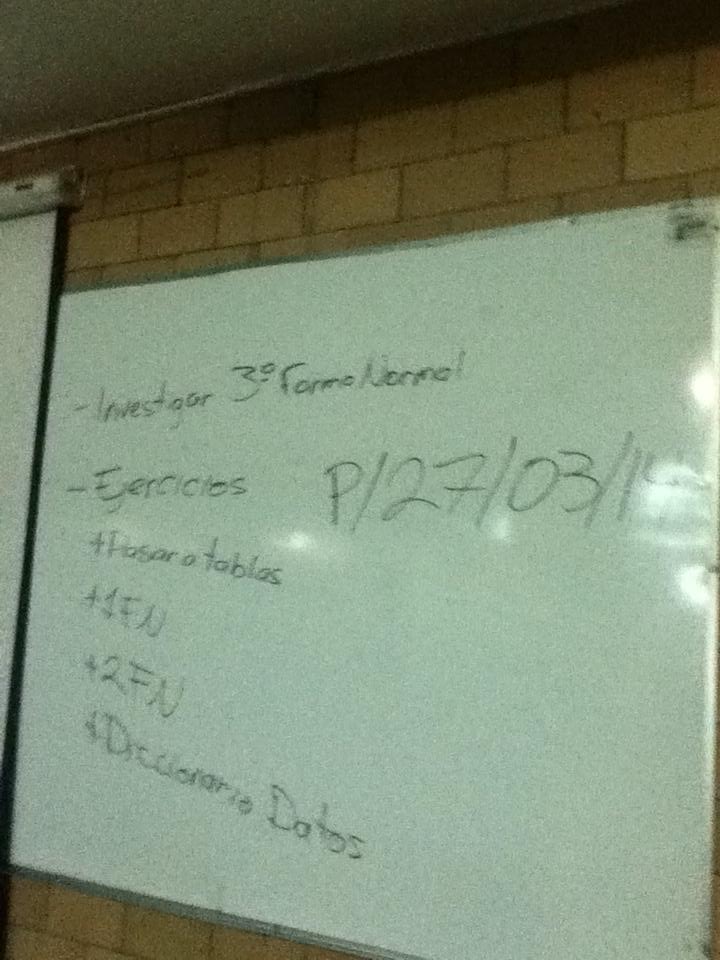 - Investgar 3º Forma Normal
- Ejercicios P/27/03/14
+Pasar a tablas
+1FN
+2FN
+Diccionario Datos